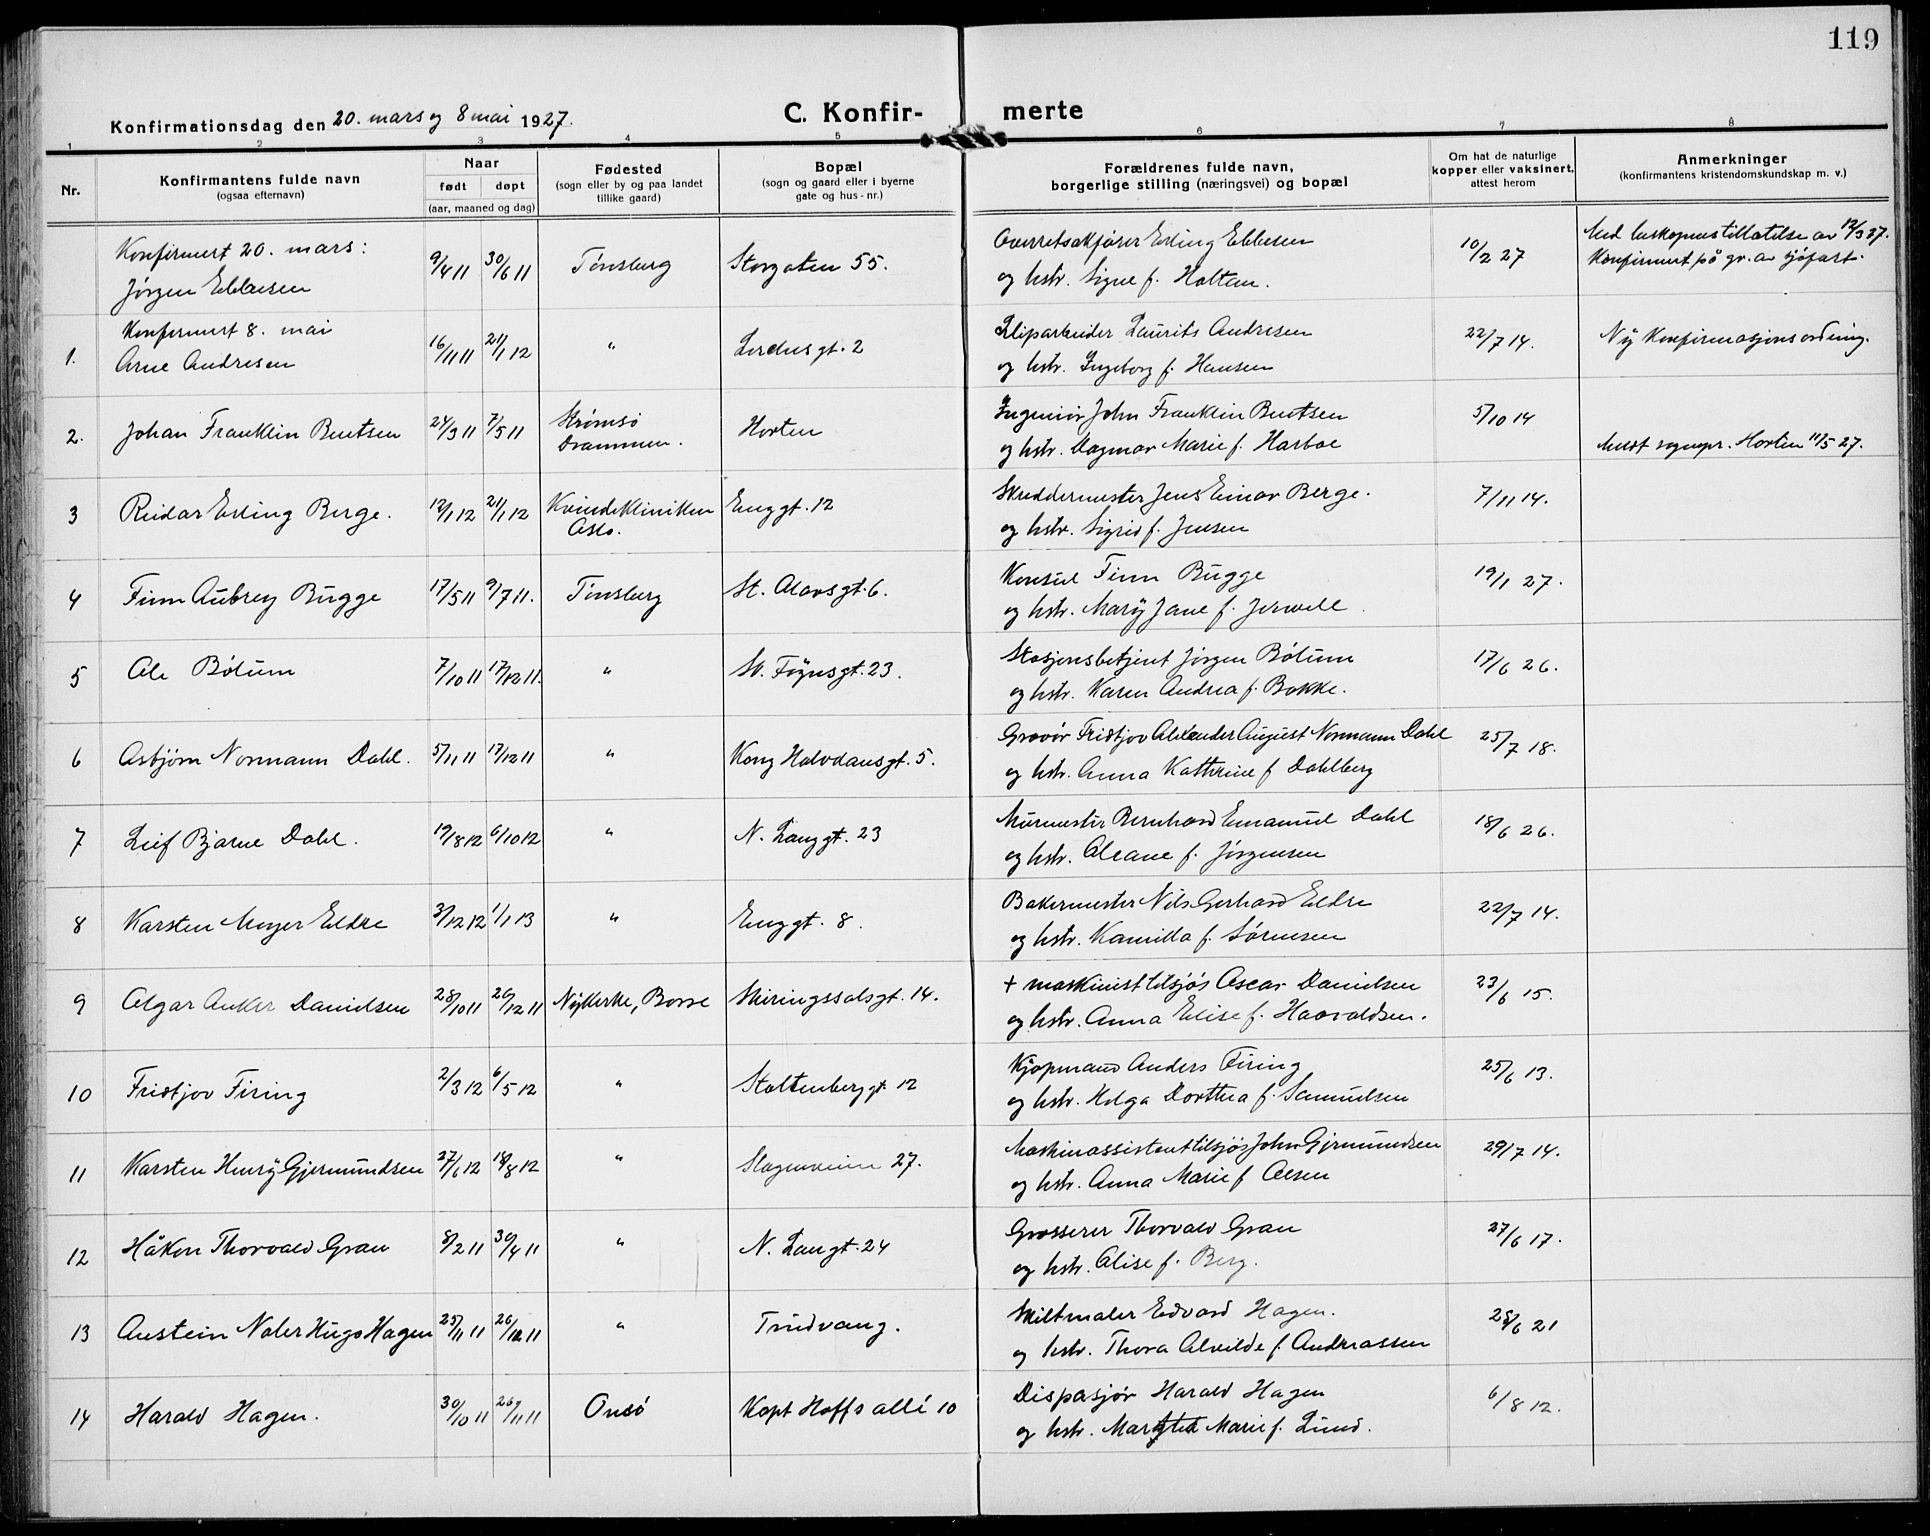 119
Konfirmationsdag den 20. mars og 8 mai 1927.
C. Konfir- merte
1 2 3 4 5 6 7 8
Nr.
Konfirmantens fulde navn
(ogsaa efternavn)
Naar
født døpt
(aar, maaned og dag)
Fødested
(sogn eller by og paa landet
tillike gaard)
Bopæl
(sogn og gaard eller i byerne
gate og hus-nr.)
Forældrenes fulde navn,
borgerlige stilling (næringsvei) og bopæl
Om hat de naturlige
kopper eller vaksinert,
attest herom
Anmerkninger
(konfirmantens kristendomskundskap m. v.)
Konfirmert 20. mars:
Jørgen Ebbesen
9/4 11 30/6 11 Tønsberg Storgaten 55.
Overretsakfører Erling Ebbesen
og hstr. Signe f. Holtan.
10/2 27
Med biskopens tillatelse av 12/3 27.
Konfirmert på gr. av sjøfart.
Konfirmert 8. mai
1. Arne Andresen
16/11 11 21/1 12 " gt. 2
Sliparbeider Laurits Andresen
og hstr. Ingeborg f. Hansen
22/7 14.
Ny Konfirmasjonsordning.
2. Johan Franklin Berntsen
24/3 11 7/5 11
Strømsø
Drammen.
Horten
Ingeniør John Franklin Berntsen
og hstr. Dagmar Marie f. Harboe
5/10 14
Meldt sognepr. Horten 11/5 27.
3 Reidar Erling Berge.
12/1 12 21/1 12
Kvindeklinikken
Oslo.
Enggt. 12
Skreddermester Jens Einar Berge.
og hstr. Sigrid f. Jensen
7/11 14.
4 Finn Aubrey Bugge
17/5 11 9/7 11. Tønsberg St. Olavsgt. 6.
Konsul Finn Bugge
og hstr. Mary Jane f.
19/1 27.
5 Ole Bølum
7/10 11 17/12 11. " Sv. Føynsgt. 23.
Stasjonsbetjent Jørgen Bølum
og hstr. Karen Andrea f. Bakke.
17/6 26.
6 Asbjørn Normann Dahl.
5/11 11 17/12 11 " Kong Halvdansgt. 5.
Gravør Fridtjov Alexander August Normann Dahl
og hstr. Anna Kathrine f Dahlberg
25/7 18.
7 Leif Bjarne Dahl.
19/8 12 6/10 12 " N. Langgt. 23
Murmester Bernhard Emanuel Dahl
og hstr. Oleane f. Jørgensen
18/6 26.
8 Karsten Meyer Eldre
3/12 12 1/1 13 " Enggt. 8.
Bakermester Nils Gerhard Eldre
og hstr. Kamilla f. Sørensen
22/7 14.
9 Olgar Anker Danielsen
28/10 11 26/12 11 Nykirke, Borre Skiringssalsgt. 14.
+ maskinist tilsjøs Oscar Danielsen
og hstr. Anna Elise f. Haavaldsen.
23/6 15.
10 Fridtjov Firing
2/3 12 6/5 12 " Stoltenberggt. 12
Kjøpmand Anders Firing
og hstr. Helga Dorthea f. Samuelsen
25/6 13.
11 Karsten Henry Gjermundsen
27/6 12 18/8 12 " Slagenveien 27.
Maskinassistent tilsjøs John Gjermundsen
og hstr. Anna Marie f Olsen
29/7 14.
12 Håkon Thorvald Gran
8/2 11 30/4 11 " N. Langt. 24
Grosserer Thorvald Gran
og hstr. Alise f. Berg.
27/6 17.
13 Austein Hugo Hagen
25/11 11 26/12 11 " Trudvang.
Skiltmaler Edvard Hagen.
og hstr. Thora Alvilde f. Andreassen
28/6 21
14 Harald Hagen.
30/10 11 26/11 11 Onsø Kapt Hoffs allé 10
Dispasjør Harald Hagen
og hstr. Marie f. Lund.
6/8 12.